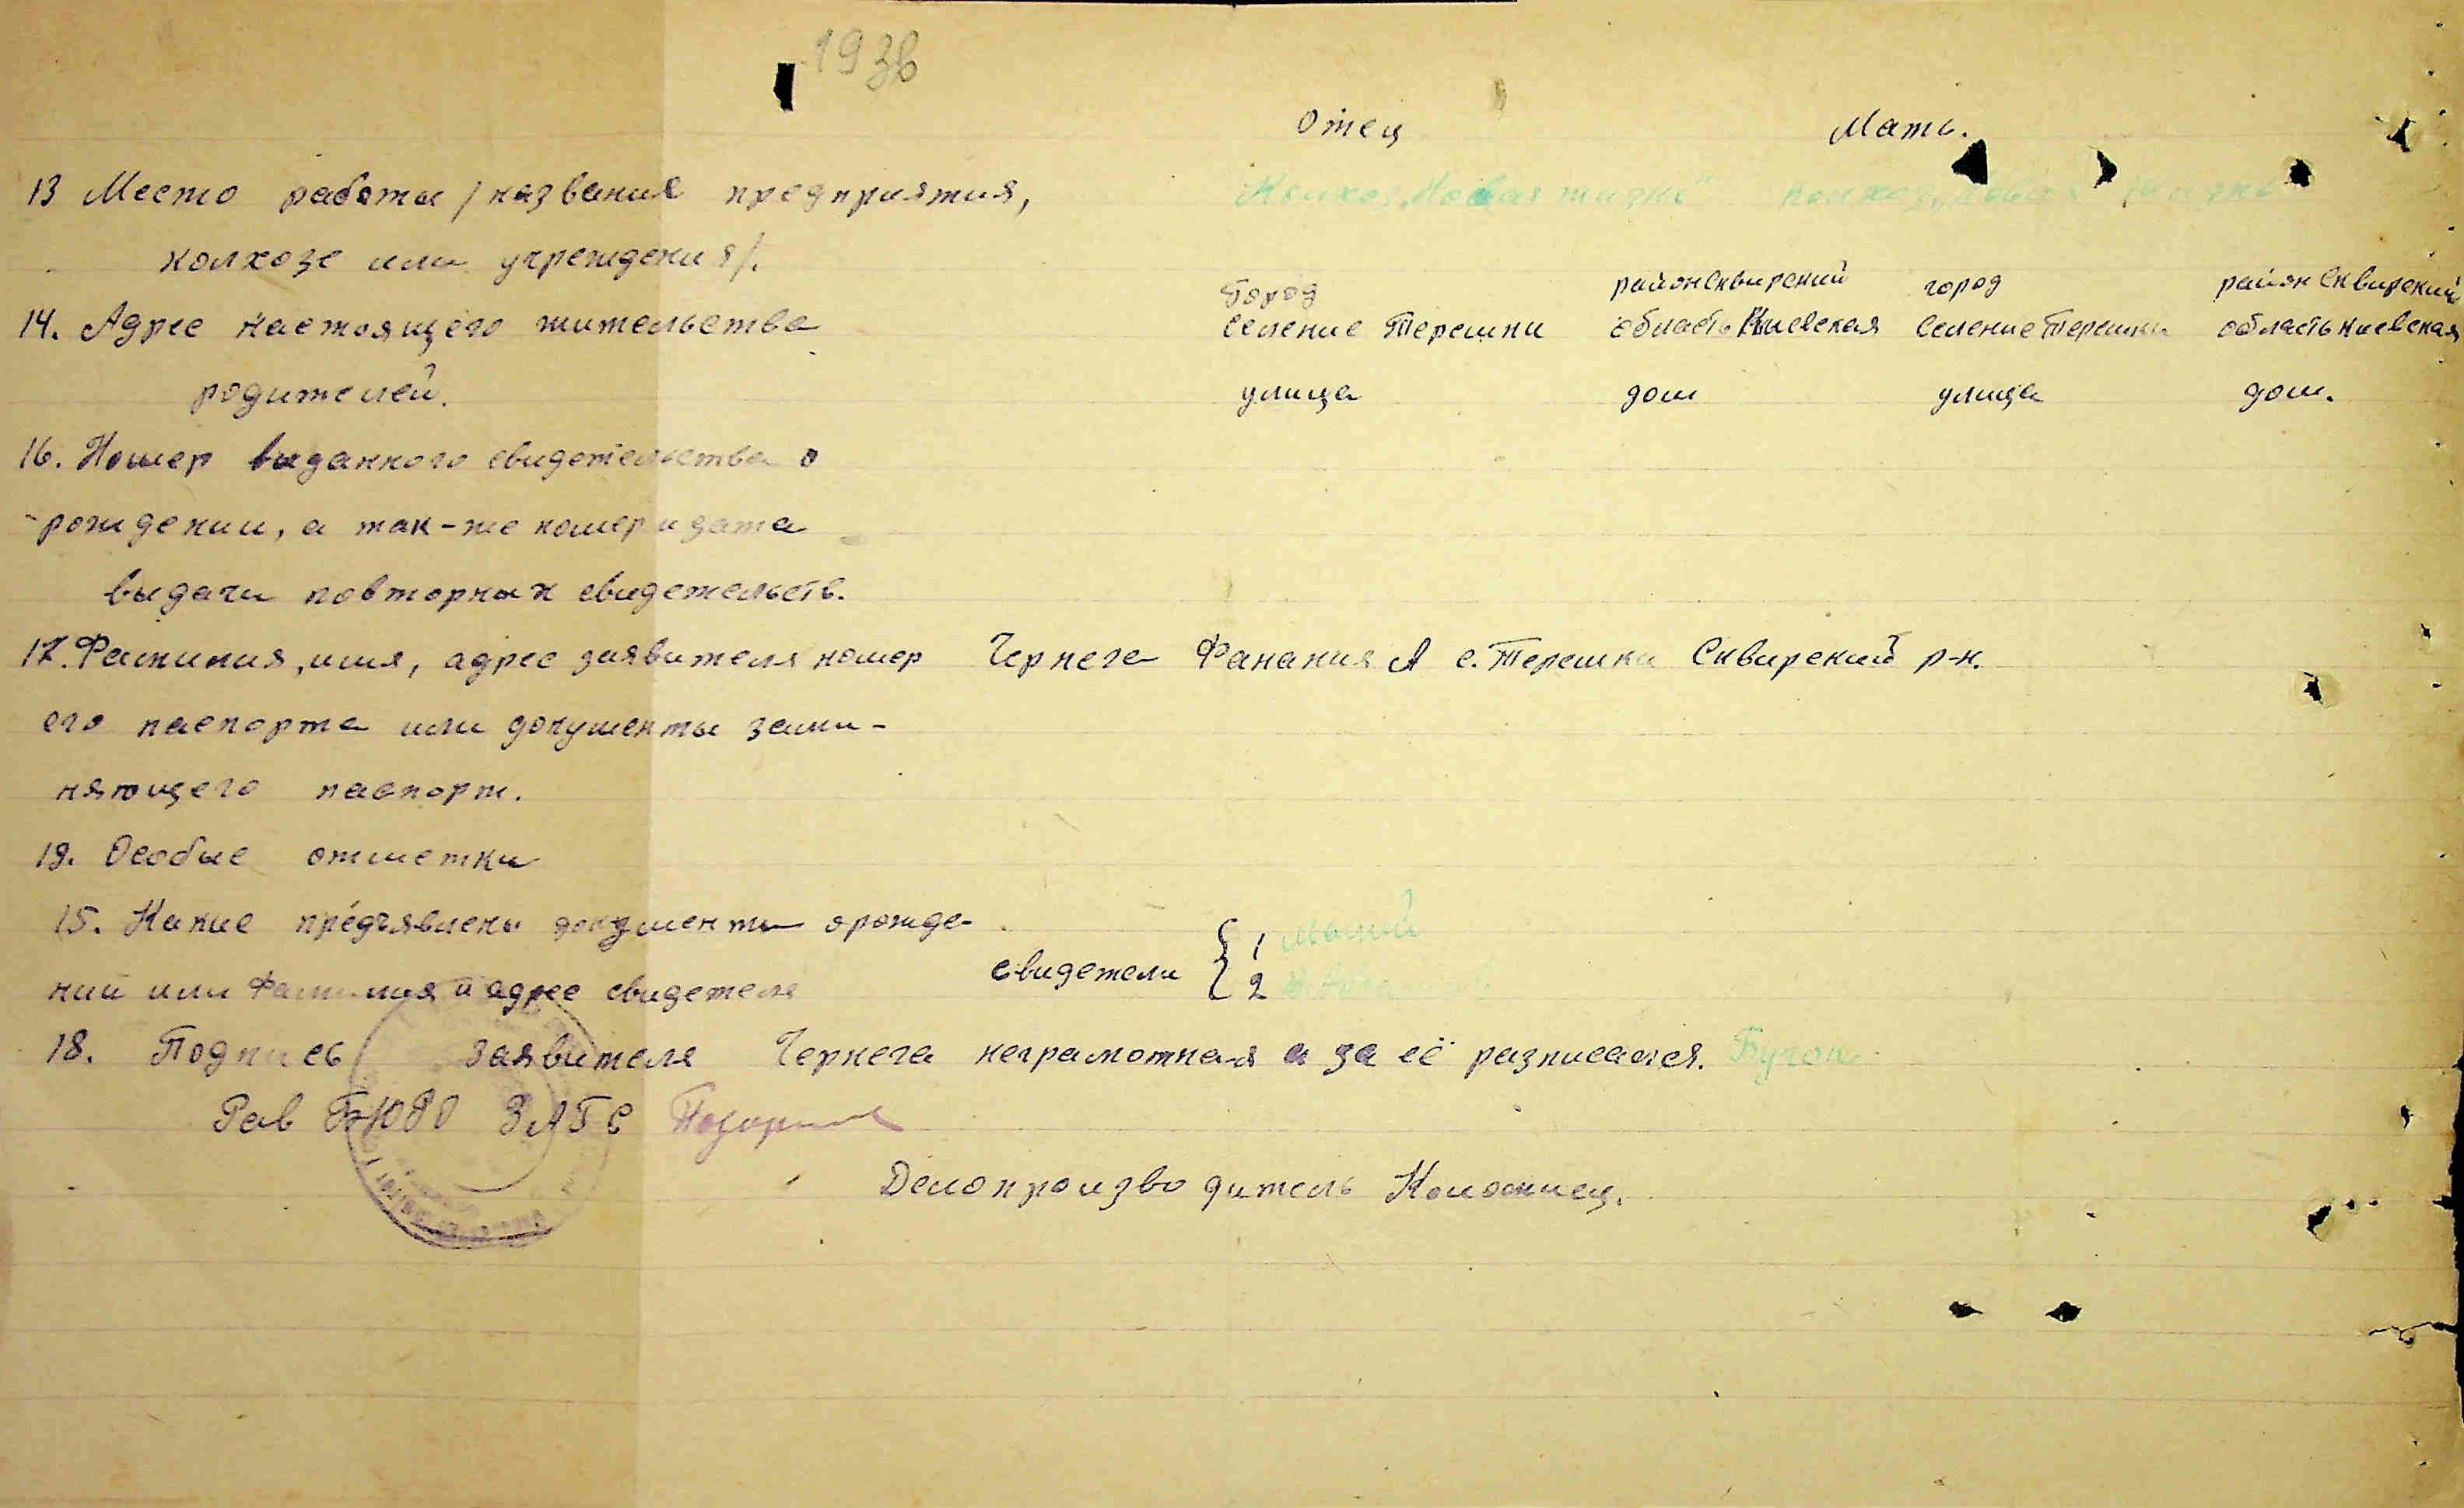 1936
Отец Мать.
13 Место работы /название предприятия, Колхоз „Новая жизнь" Колхоз „Новая жизнь
колхозе или учреждения/.
Город район Сквирский город район Сквирский
14. Адрес настоящего жительства селение Терешки область Киевская селение Терешки область Киевская
родителей. улица дом улица дом.
16. Номер выданного свидетельства о
рождении, а так-же номер и дата
выдачи повторных свидетельств.
17. Фамилия, имя, адрес заявителя номер Чернега Фанания А с. Терешки Сквирский р-н.
его паспорта или документы заме-
няющего паспорт.
19. Особые отметки
15. Какие предъявлены документы о рожде-
свидетели { 1
нии или Фамилия и адрес свидетеля 2
18. Подпись заявителя Чернега неграмотная а за её разписался.
Зав Бюро ЗАГС
Делопроизводитель Коломиец.